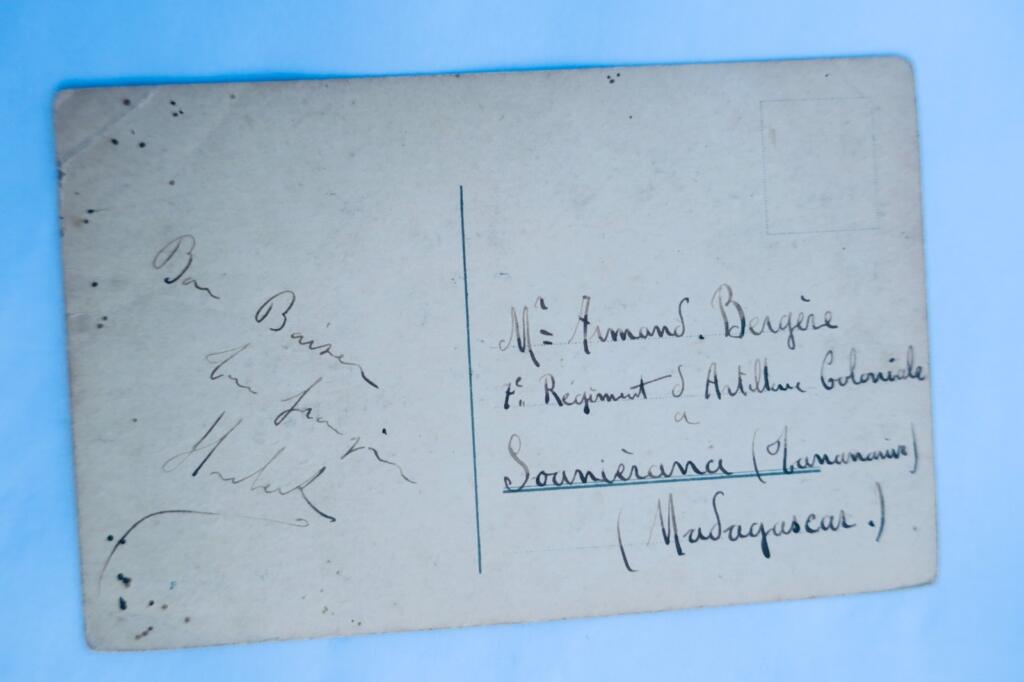 Bon
Baiser
Ton frangin
Hubert
Mr= Armand. Bergère
7e. Régiment d'Artillerie Coloniale
a
Souniérana (Tananarive)
(Madagascar.)